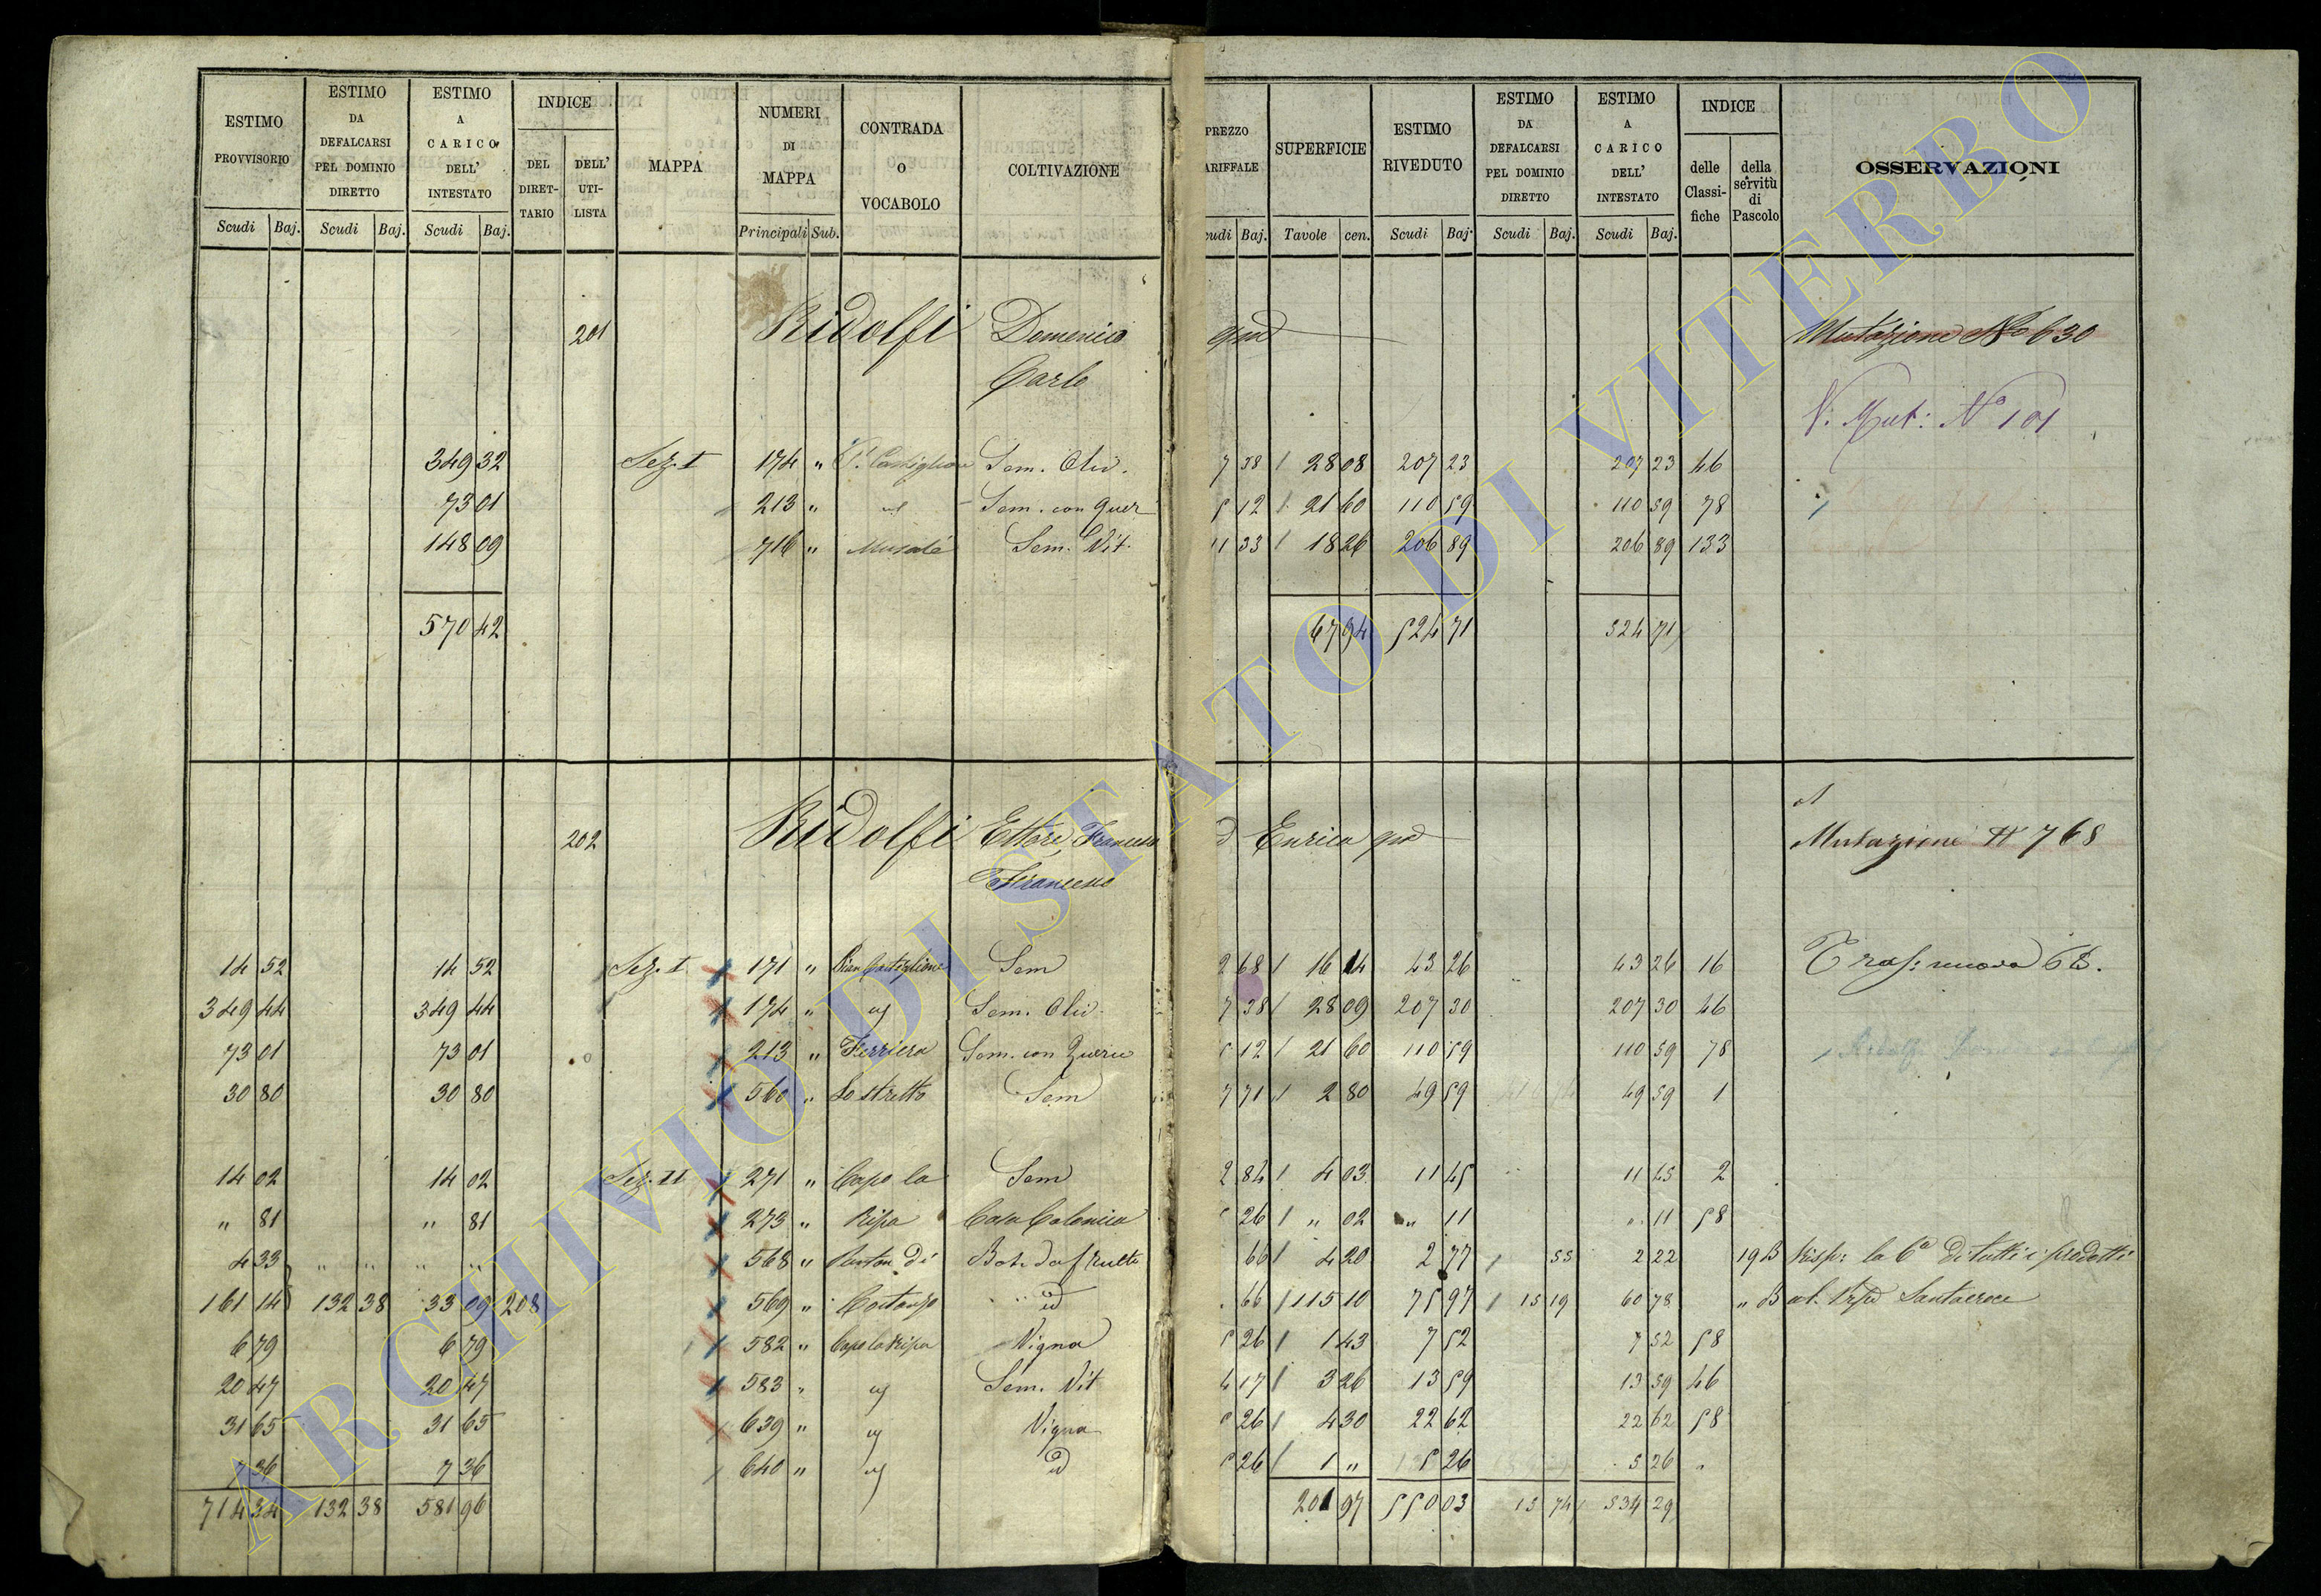 ESTIMO PROVVISORIO | ESTIMO DA DEFALCARSI PEL DOMINIO DIRETTO | ESTIMO A CARICO DELL' INTESTATO | INDICE DEL DIRETTARIO | DELL' UTILISTA | MAPPA | NUMERI DI MAPPA | CONTRADA O VOCABOLO | COLTIVAZIONE | PREZZO ARIFFALE | SUPERFICIE | ESTIMO RIVEDUTO | ESTIMO DA DEFALCARSI PEL DOMINIO DIRETTO | ESTIMO A CARICO DELL' INTESTATO | INDICE delle Classifiche | della servitù di Pascolo | OSSERVAZIONI
Scudi Baj. | Scudi Baj. | Scudi Baj. | Principali Sub. | cudi Baj. | Tavole cen. | Scudi Baj. | Scudi Baj. | Scudi Baj.
201 Ridolfi Domenico qm Mutazione No 630
Carlo
V. Mut: No 101
349 32 Sez. I 174 " Sem. Oliv. 7 38 28 08 207 23 207 23 46
73 01 213 " Sem. con Quer 5 12 21 60 110 59 110 59 78
148 09 716 " Sem. Vit. 11 33 18 26 206 89 206 89 133
570 42 67 94 524 71 524 71
202 Ridolfi Ettore, Francesco d Enrico qm Mutazione N 768
Francesco
14 52 14 52 Sez. I 171 " Pian Castiglione Sem 2 68 16 14 43 26 43 26 16 Tras: nuova 68.
349 44 349 44 174 " Sem. Oliv. 7 38 28 09 207 30 207 30 46
73 01 73 01 213 " Ferriera Sem. con Querc 5 12 21 60 110 59 110 59 78
30 80 30 80 560 " Lo stretto Sem 7 71 2 80 49 59 49 59 1
14 02 14 02 Sez. II 271 " Capo la Sem 2 84 4 03 11 45 11 45 2
" 81 " 81 273 " Ripa Casa Colonica 26 " 02 " 11 " 11 58
4 33 " " " " 568 " di 66 4 20 2 77 55 2 22 19 B Risp: la 6a di tutti i prodotti
161 14 132 38 33 09 208 569 " Costanzo id 66 115 10 75 97 15 19 60 78 " B Santacroce
6 79 6 79 582 " Capo la Ripa Vigna 5 26 1 43 7 52 7 52 58
20 47 20 47 583 " Sem. Vit 4 17 3 26 13 59 13 59 46
31 65 31 65 639 " Vigna 5 26 4 30 22 62 22 62 58
7 36 7 36 640 " id 5 26 1 " 5 26 5 26 "
714 34 132 38 581 96 201 97 550 03 15 74 534 29
ARCHIVIO DI STATO DI VITERBO